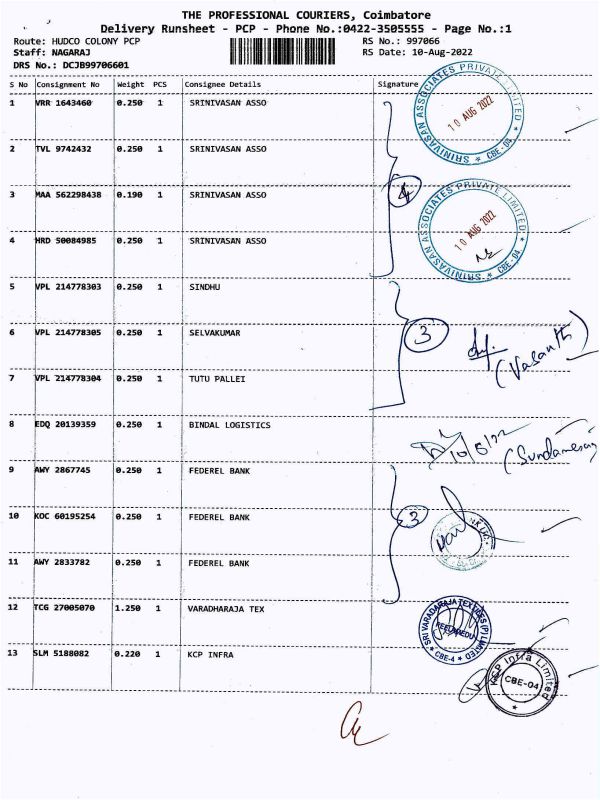 THE PROFESSIONAL COURIERS, Coimbatore
Delivery Runsheet - PCP - Phone No.:0422-3505555 - Page No.:1
Route: HUDCO COLONY PCP RS No.: 997066
Staff: NAGARAJ RS Date: 10-Aug-2022
DRS No.: DCJB99706601
S No Consignment No Weight PCS Consignee Details Signature
1 VRR 1643460 0.250 1 SRINIVASAN ASSO
SRINIVASAN ASSOCIATES PRIVATE LIMITED * CBE-04 *
10 AUG 2022
2 TVL 9742432 0.250 1 SRINIVASAN ASSO
3 MAA 562298438 0.190 1 SRINIVASAN ASSO
4
SRINIVASAN ASSOCIATES PRIVATE LIMITED * CBE-04 *
10 AUG 2022
4 HRD 50084985 0.250 1 SRINIVASAN ASSO
5 VPL 214778303 0.250 1 SINDHU
6 VPL 214778305 0.250 1 SELVAKUMAR
3
(Vasanth)
7 VPL 214778304 0.250 1 TUTU PALLEI
8 EDQ 20139359 0.250 1 BINDAL LOGISTICS
10/8/22
9 AWY 2867745 0.250 1 FEDEREL BANK
10 KOC 60195254 0.250 1 FEDEREL BANK
3
11 AWY 2833782 0.250 1 FEDEREL BANK
12 TCG 27005070 1.250 1 VARADHARAJA TEX
SRI VARADARAJA TEXTILES (P) LIMITED * CBE-4 *
PEELAMEDU
13 SLM 5188082 0.220 1 KCP INFRA
KCP Infra Limited
CBE-04